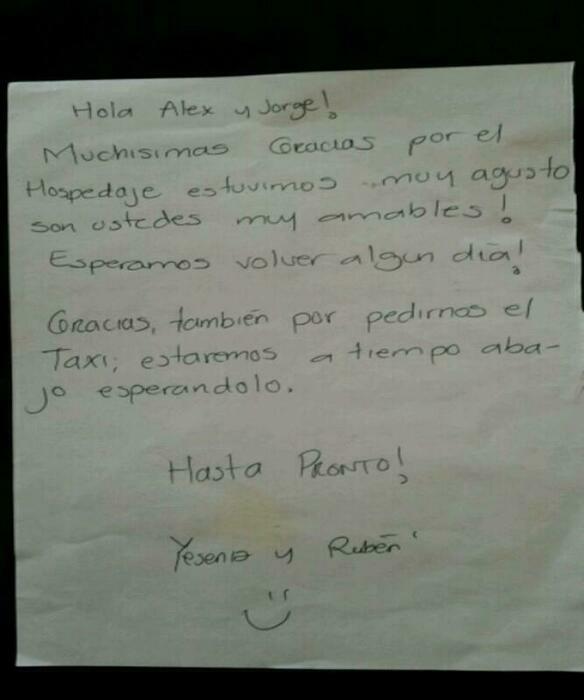 Hola Alex y Jorge!
Muchisimas Gracias por el
Hospedaje estuvimos ..muy agusto
son ustedes muy amables!
Esperamos volver algun día!
Gracias, también por pedirnos el
Taxi; estaremos a tiempo aba-
jo esperandolo.
Hasta PRONTO!
Yesenia y Rubén